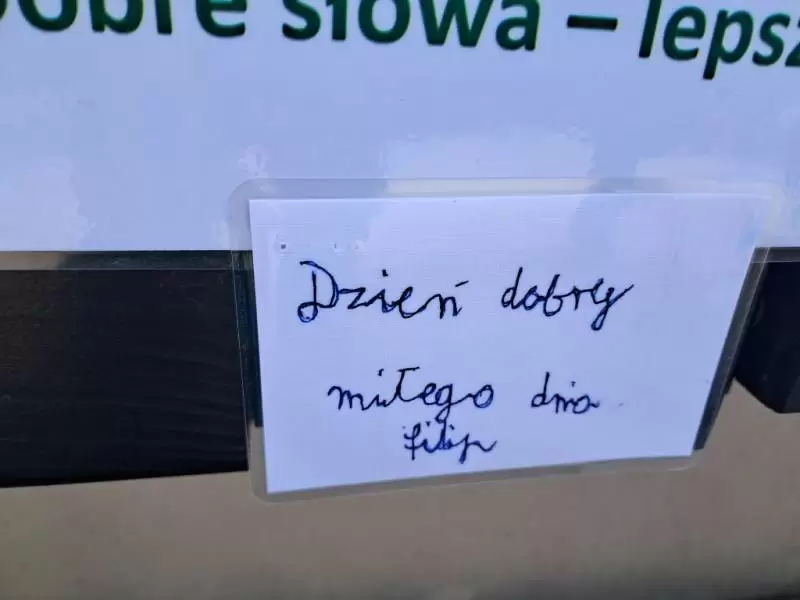 dobre słowa – lepsz
Dzień dobry
miłego dnia
filip